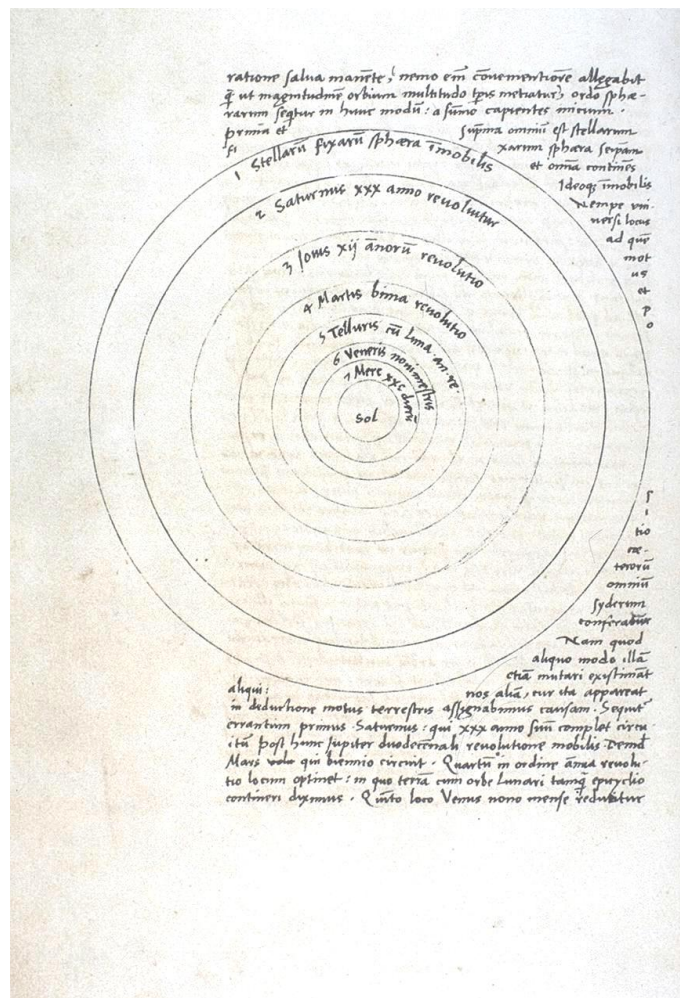 ratione salva manēte, nemo em̄ cōvenientiorē allegabit
q̄ ut magnitudinē orbium multitudo tp̄is metiatur, ordo sphæ-
rarum seq̄tur in hunc modū: a sūmo capientes inicium.
prima et sup̄ma omniū est stellarum
fi xarum sphæra seipsam
et omīa continēs
Ideoq; īmobilis
Nempe uni-
versi locus
ad quē
mot
us
et
p
o
1 Stellarū fixarū sphæra īmobilis
2 Saturnus xxx anno revoluitur
3 Jovis xij āñorū revolutio
4 Martis bima revolutio
5 Telluris cū luna an. re.
6 Veneris nonimestris
7 Merc xxc dierū
Sol
s
i
tio
cæ-
terorū
omniū
syderum
conferatur
Nam quod
aliquo modo illā
etiā mutari existimāt
aliqui: nos aliā, cur ita appareat
in deductione motus terrestris assignabimus causam. Sequit̄
errantium primus Saturnus: qui xxx anno suū complet circu
itū post hunc Jupiter duodecēnali revolutione mobilis. Deind
Mars qui biennio circuit. Quartū in ordine āñua revolu-
tio locum optinet: in quo terrā cum orbe Lunari tamq̄ epicyclio
contineri diximus. Quīto loco Venus nono mense reducitur